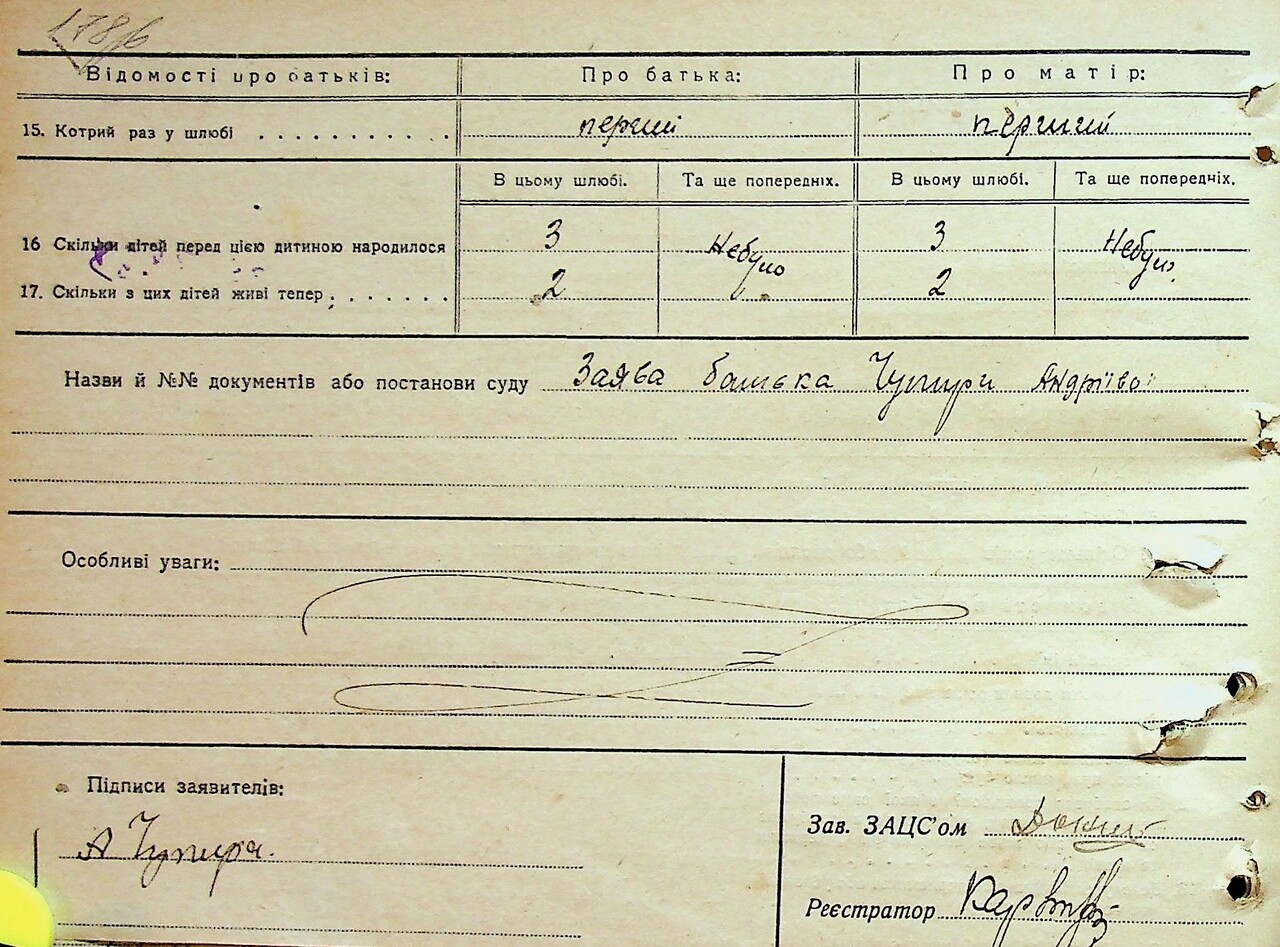 178б
Відомості про батьків: Про батька: Про матір:
15. Котрий раз у шлюбі . . . . . . . . . . . перший перший
В цьому шлюбі. Та ще попередніх. В цьому шлюбі. Та ще попередніх.
16 Скільки дітей перед цією дитиною народилося 3 Небуло 3 Небуло
17. Скільки з цих дітей живі тепер . . . . . . . 2 2
Назви й №№ документів або постанови суду Заява батька Чупири
Особливі уваги:
Підписи заявителів:
А Чупира.
Зав. ЗАЦС'ом
Реєстратор